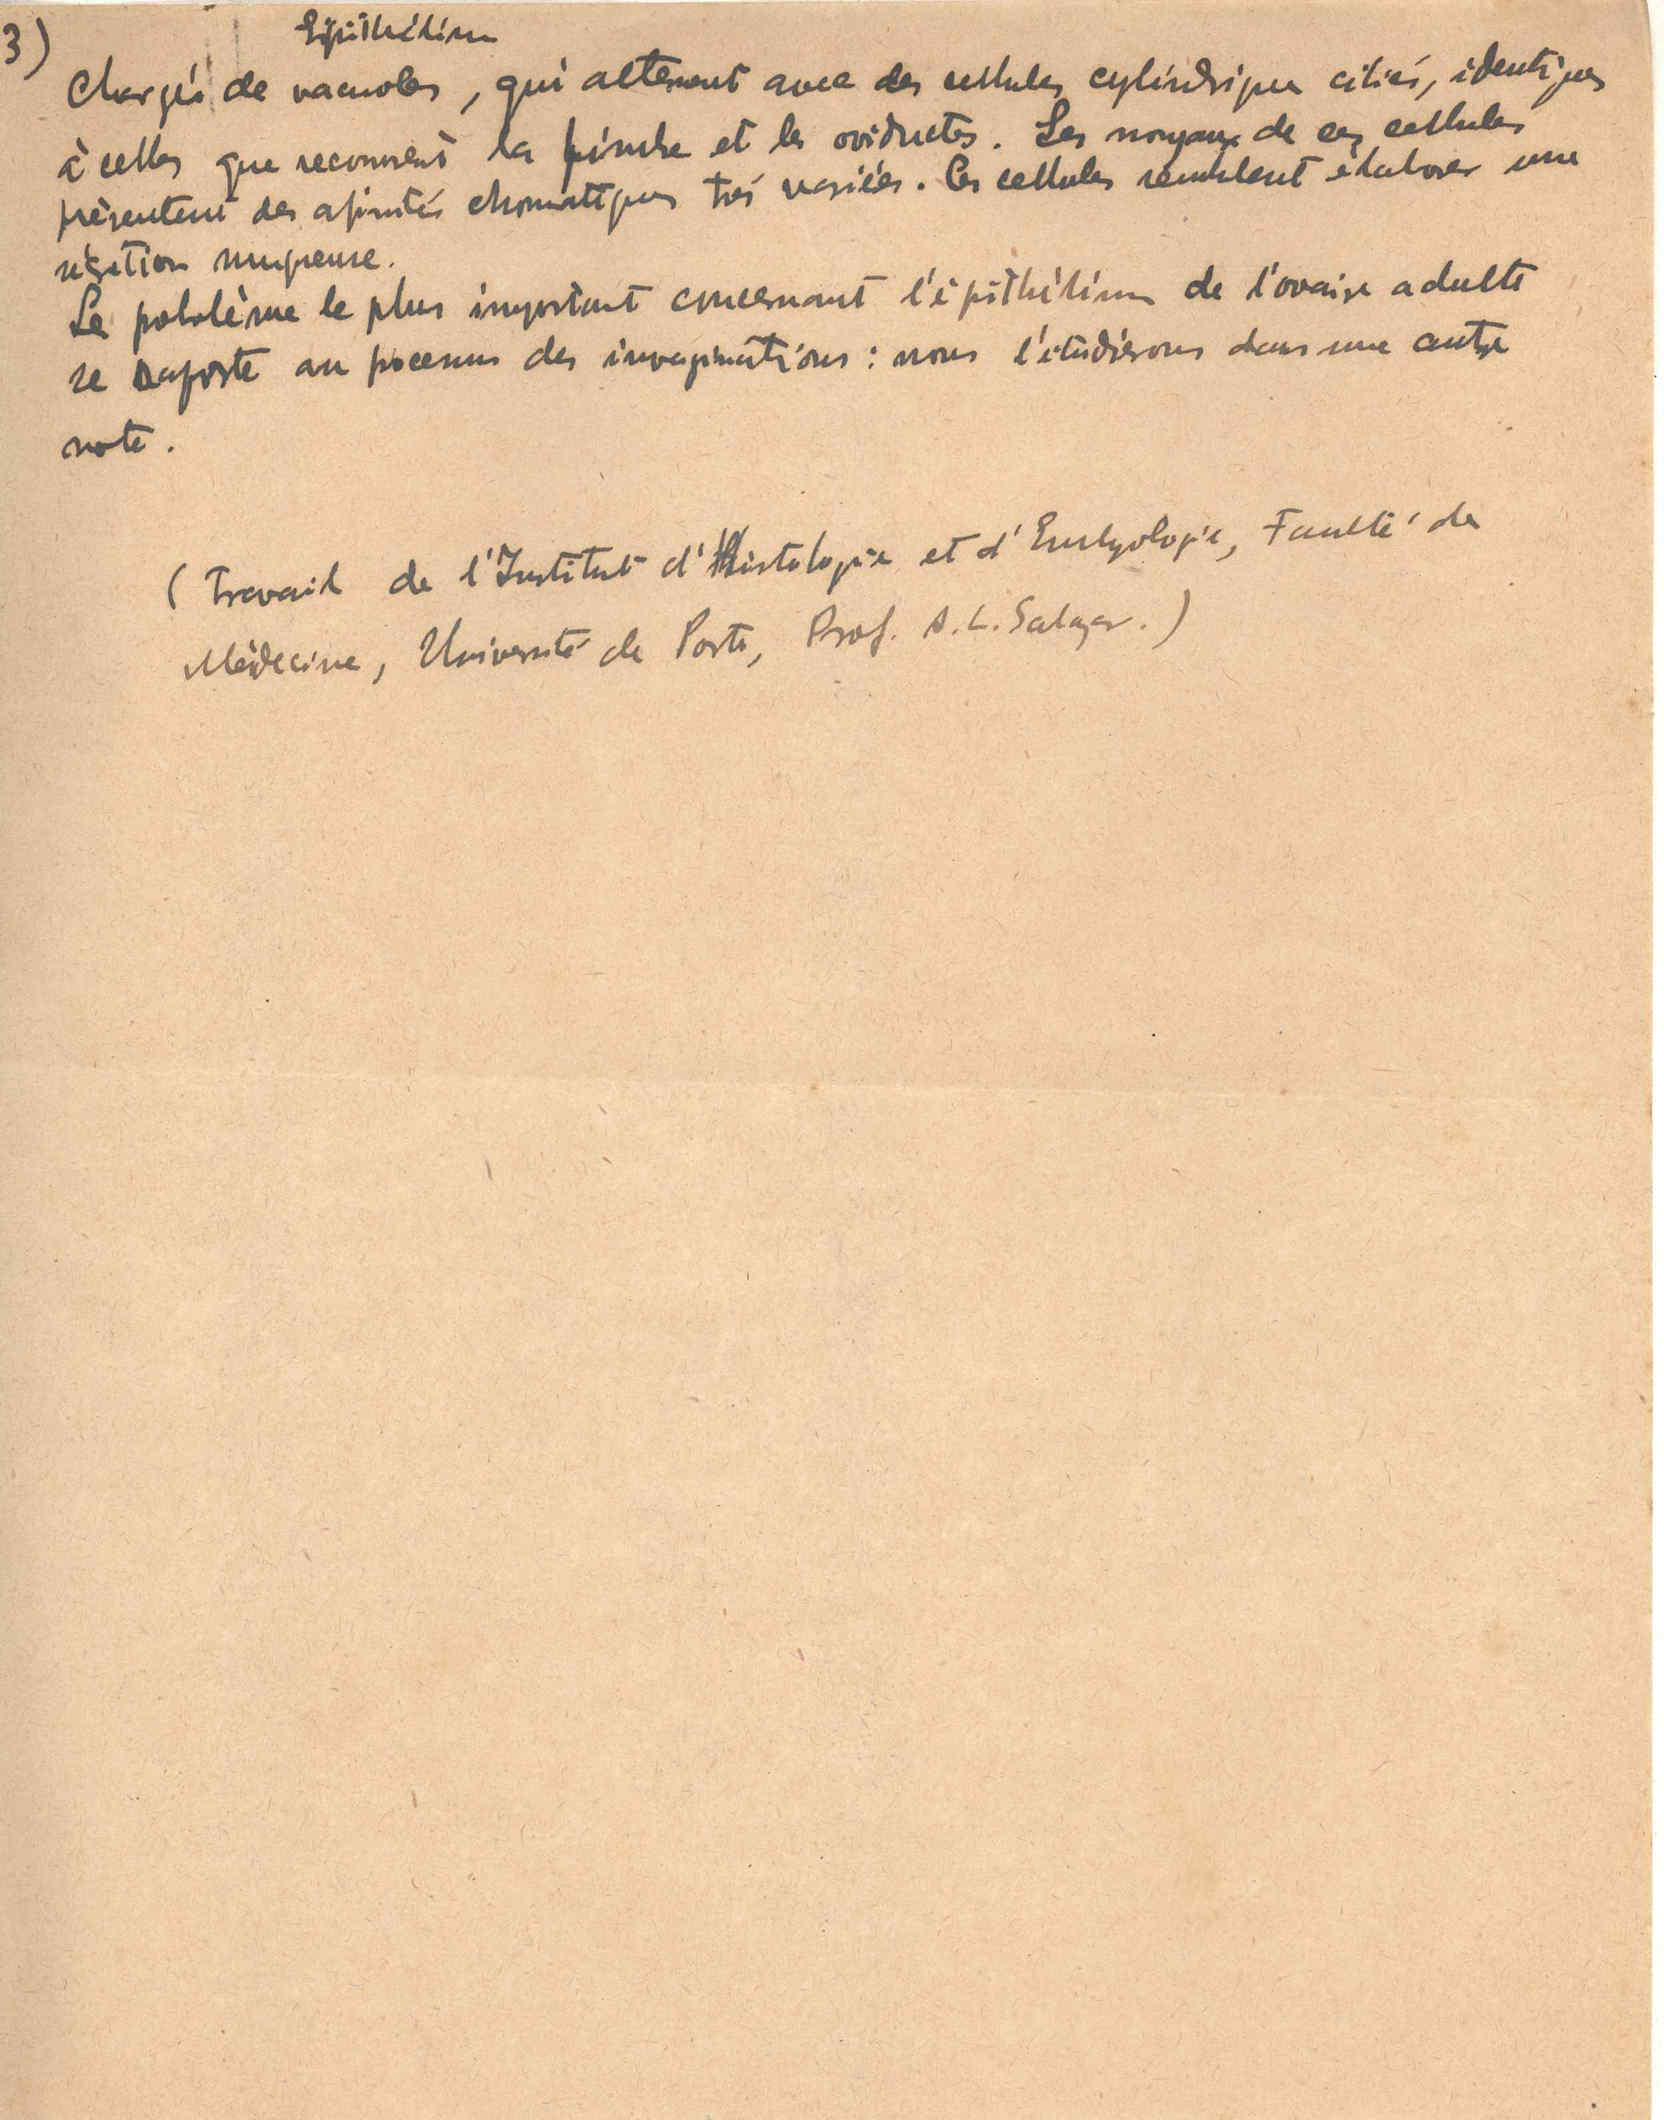 3)
Epithélium
Chargés de vacuoles, qui alternent avec des cellules cylindriques ciliés, identiques
à celles que recouvrent la et les oviductes. Les noyaux de ces cellules
présentent des afinités chomatiques trés variées. Ces cellules semblent élaborer une
muqueuse.
Le le plus important concernant l'épithélium de l'ovaire adulte
se raporte au processus des invaginations : nous l'étudierons dans une autre
note.
(Travail de l'Institut d'Histologie et d'Embryologie, Faculté de
Médecine, Université de Porto, Prof. A. L. Salazar.)